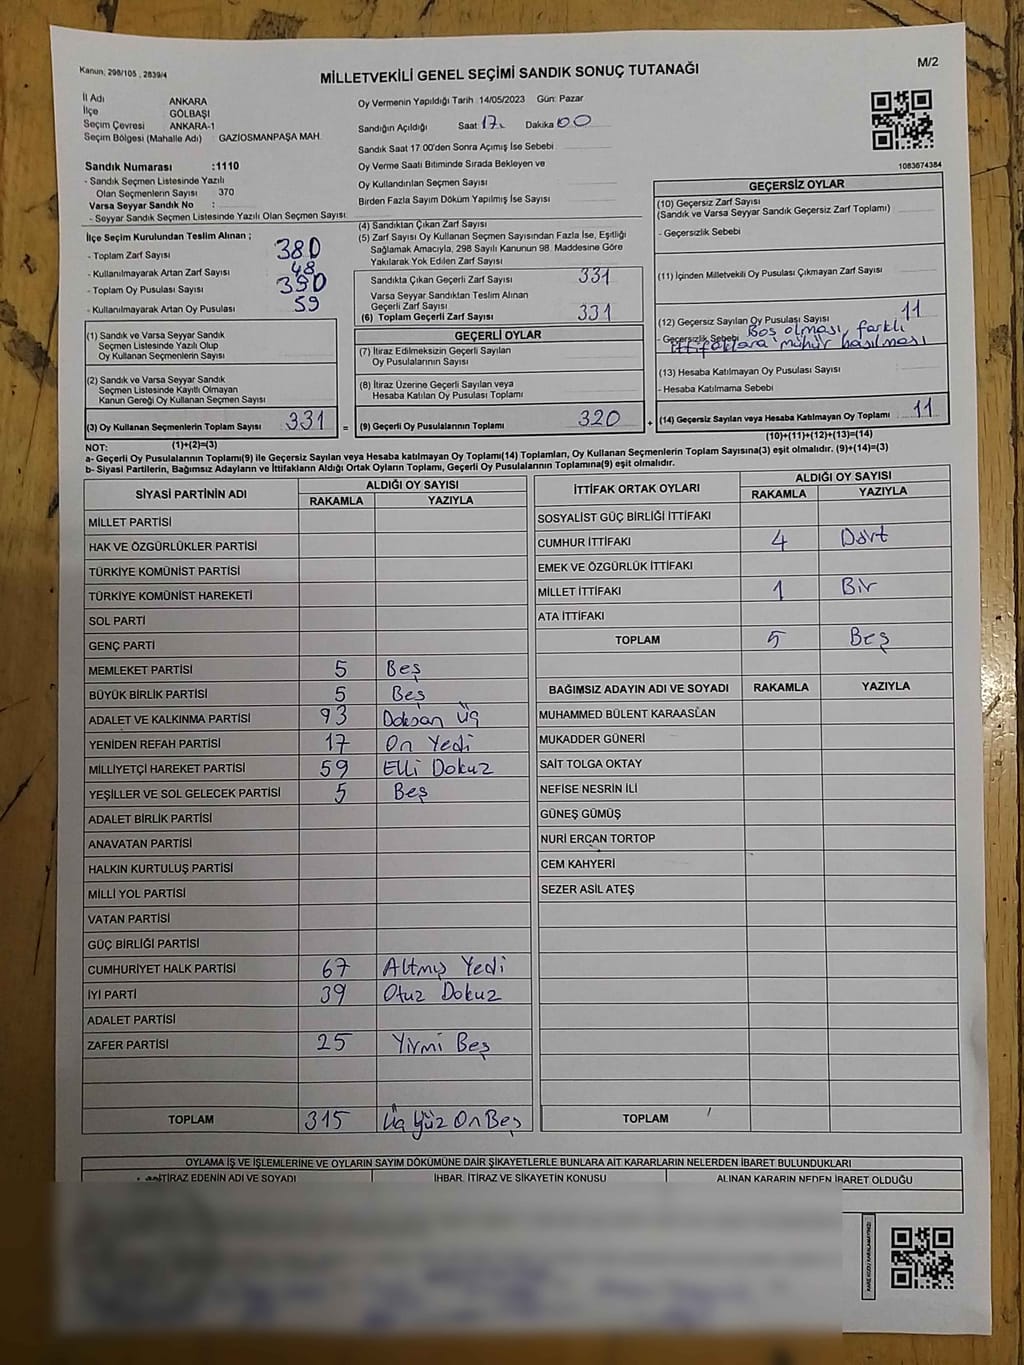 Kanun, 298/105 , 2839/4
MİLLETVEKİLİ GENEL SEÇİMİ SANDIK SONUÇ TUTANAĞI
M/2
İl Adı ANKARA
İlçe GÖLBAŞI
Seçim Çevresi ANKARA-1
Seçim Bölgesi (Mahalle Adı) GAZİOSMANPAŞA MAH.
Sandık Numarası :1110
- Sandık Seçmen Listesinde Yazılı
Olan Seçmenlerin Sayısı 370
Varsa Seyyar Sandık No :
- Seyyar Sandık Seçmen Listesinde Yazılı Olan Seçmen Sayısı:
Oy Vermenin Yapıldığı Tarih 14/05/2023 Gün: Pazar
Sandığın Açıldığı Saat 17. Dakika 00
Sandık Saat 17 00'den Sonra Açımış İse Sebebi
Oy Verme Saati Bitiminde Sırada Bekleyen ve
Oy Kullandırılan Seçmen Sayısı
Birden Fazla Sayım Döküm Yapılmış İse Sayısı
1083674384
İlçe Seçim Kurulundan Teslim Alınan ;
- Toplam Zarf Sayısı 380
- Kullanılmayarak Artan Zarf Sayısı 48
- Toplam Oy Pusulası Sayısı 390
- Kullanılmayarak Artan Oy Pusulası 59
(1) Sandık ve Varsa Seyyar Sandık
Seçmen Listesinde Yazılı Olup
Oy Kullanan Seçmenlerin Sayısı
(2) Sandık ve Varsa Seyyar Sandık
Seçmen Listesinde Kayıtlı Olmayan
Kanun Gereği Oy Kullanan Seçmen Sayısı
(3) Oy Kullanan Seçmenlerin Toplam Sayısı 331
(1)+(2)=(3)
(4) Sandıktan Çıkan Zarf Sayısı
(5) Zarf Sayısı Oy Kullanan Seçmen Sayısından Fazla İse, Eşitliği
Sağlamak Amacıyla, 298 Sayılı Kanunun 98. Maddesine Göre
Yakılarak Yok Edilen Zarf Sayısı
Sandıkta Çıkan Geçerli Zarf Sayısı 331
Varsa Seyyar Sandıktan Teslim Alınan
Geçerli Zarf Sayısı
(6) Toplam Geçerli Zarf Sayısı 331
GEÇERLİ OYLAR
(7) İtiraz Edilmeksizin Geçerli Sayılan
Oy Pusulalarının Sayısı
(8) İtiraz Üzerine Geçerli Sayılan veya
Hesaba Katılan Oy Pusulası Toplamı
= (9) Geçerli Oy Pusulalarının Toplamı 320 +
GEÇERSİZ OYLAR
(10) Geçersiz Zarf Sayısı
(Sandık ve Varsa Seyyar Sandık Geçersiz Zarf Toplamı)
- Geçersizlik Sebebi
(11) İçinden Milletvekili Oy Pusulası Çıkmayan Zarf Sayısı
(12) Geçersiz Sayılan Oy Pusulası Sayısı 11
- Geçersizlik Sebebi Boş olması, farklı
ittifaklara mühür basılması
(13) Hesaba Katılmayan Oy Pusulası Sayısı
- Hesaba Katılmama Sebebi
(14) Geçersiz Sayılan veya Hesaba Katılmayan Oy Toplamı : 11
(10)+(11)+(12)+(13)=(14)
NOT:
a- Geçerli Oy Pusulalarının Toplamı(9) ile Geçersiz Sayılan veya Hesaba katılmayan Oy Toplamı(14) Toplamları, Oy Kullanan Seçmenlerin Toplam Sayısına(3) eşit olmalıdır. (9)+(14)=(3)
b- Siyasi Partilerin, Bağımsız Adayların ve İttifakların Aldığı Ortak Oyların Toplamı, Geçerli Oy Pusulalarının Toplamına(9) eşit olmalıdır.
SİYASİ PARTİNİN ADI ALDIĞI OY SAYISI
RAKAMLA YAZIYLA
MİLLET PARTİSİ
HAK VE ÖZGÜRLÜKLER PARTİSİ
TÜRKİYE KOMÜNİST PARTİSİ
TÜRKİYE KOMÜNİST HAREKETİ
SOL PARTİ
GENÇ PARTİ
MEMLEKET PARTİSİ 5 Beş
BÜYÜK BİRLİK PARTİSİ 5 Beş
ADALET VE KALKINMA PARTİSİ 93 Doksan Üç
YENİDEN REFAH PARTİSİ 17 On Yedi
MİLLİYETÇİ HAREKET PARTİSİ 59 Elli Dokuz
YEŞİLLER VE SOL GELECEK PARTİSİ 5 Beş
ADALET BİRLİK PARTİSİ
ANAVATAN PARTİSİ
HALKIN KURTULUŞ PARTİSİ
MİLLİ YOL PARTİSİ
VATAN PARTİSİ
GÜÇ BİRLİĞİ PARTİSİ
CUMHURİYET HALK PARTİSİ 67 Altmış Yedi
İYİ PARTİ 39 Otuz Dokuz
ADALET PARTİSİ
ZAFER PARTİSİ 25 Yirmi Beş
TOPLAM 315 Üç Yüz On Beş
İTTİFAK ORTAK OYLARI ALDIĞI OY SAYISI
RAKAMLA YAZIYLA
SOSYALİST GÜÇ BİRLİĞİ İTTİFAKI
CUMHUR İTTİFAKI 4 Dört
EMEK VE ÖZGÜRLÜK İTTİFAKI
MİLLET İTTİFAKI 1 Bir
ATA İTTİFAKI
TOPLAM 5 Beş
BAĞIMSIZ ADAYIN ADI VE SOYADI RAKAMLA YAZIYLA
MUHAMMED BÜLENT KARAASLAN
MUKADDER GÜNERİ
SAİT TOLGA OKTAY
NEFİSE NESRİN İLİ
GÜNEŞ GÜMÜŞ
NURİ ERCAN TORTOP
CEM KAHYERİ
SEZER ASİL ATEŞ
TOPLAM
OYLAMA İŞ VE İŞLEMLERİNE VE OYLARIN SAYIM DÖKÜMÜNE DAİR ŞİKAYETLERLE BUNLARA AİT KARARLARIN NELERDEN İBARET BULUNDUKLARI
İTİRAZ EDENİN ADI VE SOYADI İHBAR, İTİRAZ VE ŞİKAYETİN KONUSU ALINAN KARARIN NEDEN İBARET OLDUĞU
KARE KODU KARALAMAYINIZ!